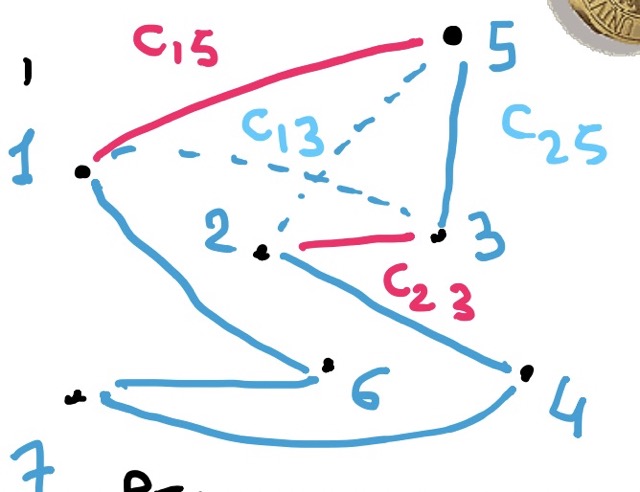 C15
5
1
C13
C25
2
3
C23
6
4
7